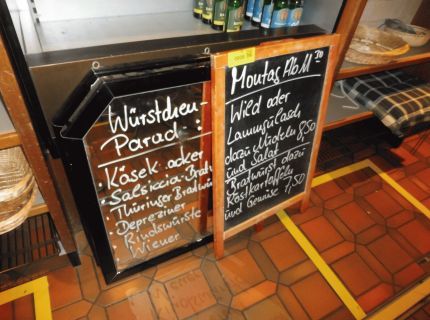 Würstchen-
Parad :
· Käsek. oder
· Salsiccia-Bratw
· Thüringer Bratwür
· Depreziner
· Rindswürste
· Wiener
Montag Ab 11
Wild oder
Lammgulasch
dazu Nudeln 8,50
und Salat
Bratwurst dazu
Röstkartoffeln
und Gemüse 7,50